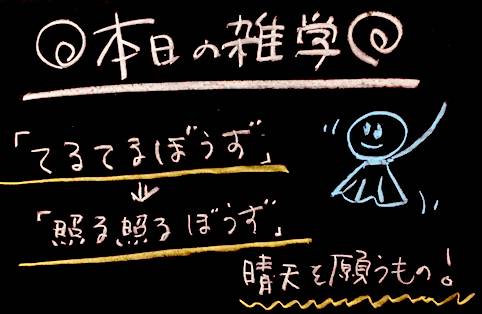 本日の雑学
「てるてるぼうず」
「照る照るぼうず」
晴天を願うもの!